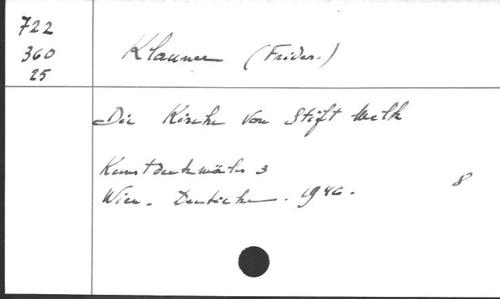 722
360
25
Klauner (Frider.)
Die Kirche von Stift Melk
Kunstdenkmäler 3
Wien. Deuticke. 1946.
8